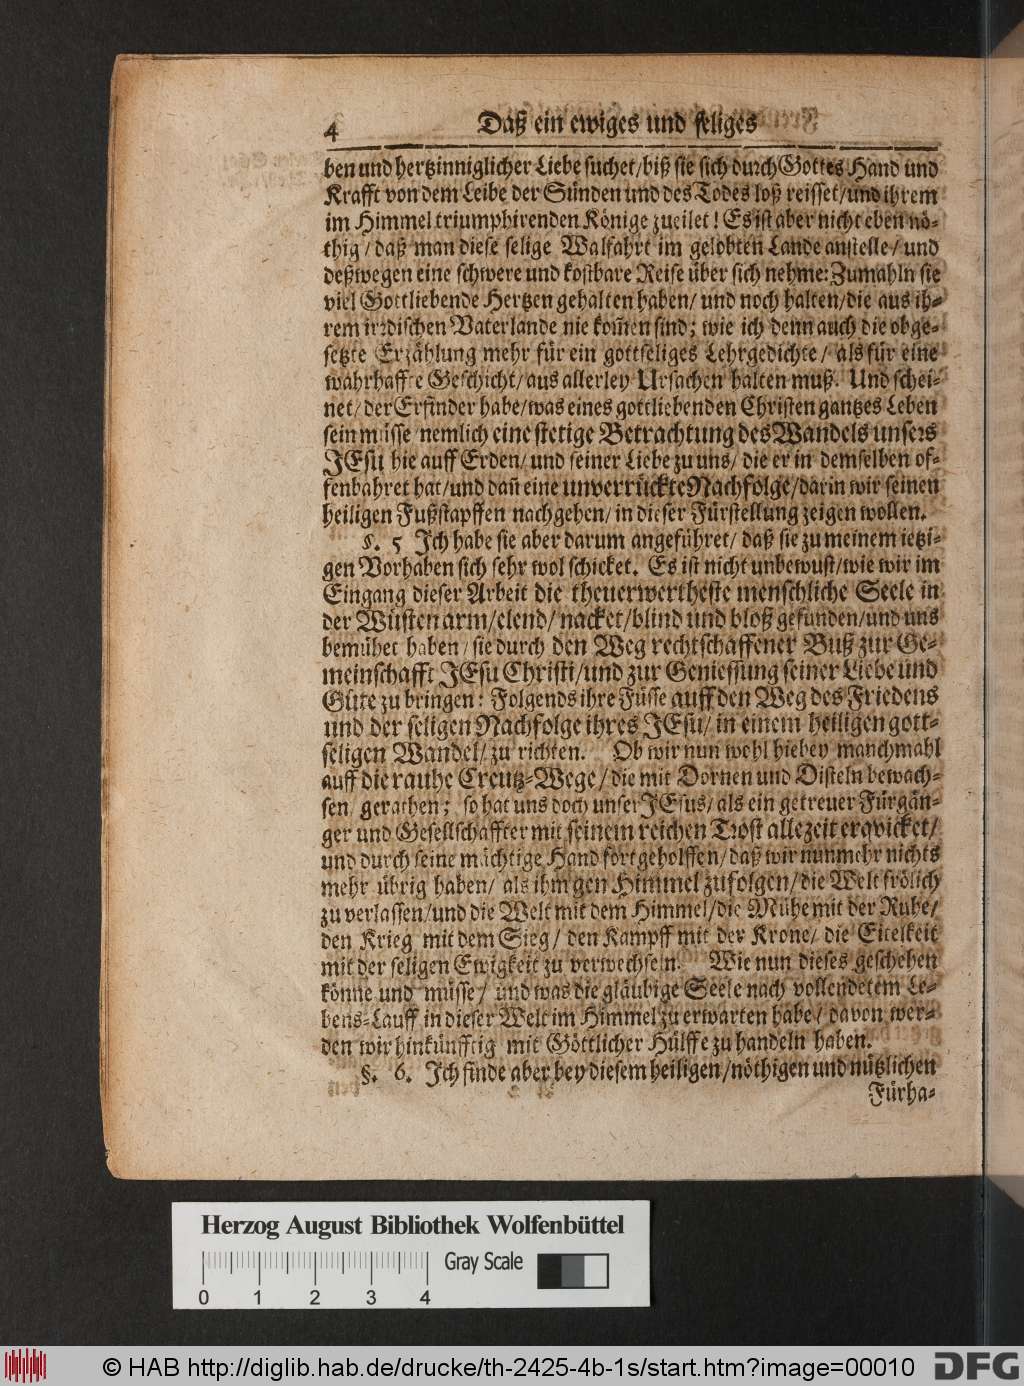 4 Daß ein ewiges und seliges
ben und hertzinniglicher Liebe suchet/biß sie sich durch Gottes Hand und
Krafft von dem Leibe der Sünden und des Todes loß reisset/und ihrem
im Himmel triumphirenden Könige zueilet! Es ist aber nicht eben nö-
thig/daß man diese selige Walfahrt im gelobten Lande anstelle/und
deßwegen eine schwere und kostbare Reise über sich nehme: Zumahln sie
viel Gottliebende Hertzen gehalten haben/ und noch halten/die aus ih-
rem irrdischen Vaterlande nie kom̃en sind; wie ich denn auch die obge-
setzte Erzählung mehr für ein gottseliges Lehrgedichte/ als für eine
wahrhaffte Geschicht/aus allerley Ursachen halten muß. Und schei-
net/der Erfinder habe/was eines gottliebenden Christen gantzes Leben
sein müsse nemlich eine stetige Betrachtung des Wandels unsers
JEsu hie auff Erden/ und seiner Liebe zu uns/ die er in demselben of-
fenbahret hat/und dañ eine unverrückte Nachfolge/darin wir seinen
heiligen Fußstapffen nachgehen/ in dieser Fürstellung zeigen wollen.
§. 5 Ich habe sie aber darum angeführet/ daß sie zu meinem ietzi-
gen Vorhaben sich sehr wol schicket. Es ist nicht unbewust/wie wir im
Eingang dieser Arbeit die theuerwertheste menschliche Seele in
der Wüsten arm/elend/ nacket/blind und bloß gefunden/und uns
bemühet haben/ sie durch den Weg rechtschaffener Buß zur Ge-
meinschafft JEsu Christi/und zur Geniessung seiner Liebe und
Güte zu bringen: Folgends ihre Füsse auff den Weg des Friedens
und der seligen Nachfolge ihres JEsu/ in einem heiligen gott-
seligen Wandel/ zu richten. Ob wir nun wohl hiebey manchmahl
auff die rauhe Creutz-Wege/die mit Dornen und Disteln bewach-
sen/ gerathen; so hat uns doch unser JEsus/ als ein getreuer Fürgän-
ger und Gesellschaffter mit seinem reichen Trost allezeit erqvicket/
und durch seine mächtige Hand fortgeholffen/daß wir nunmehr nichts
mehr übrig haben/ als ihm gen Himmel zufolgen/die Welt frölich
zu verlassen/und die Welt mit dem Himmel/die Mühe mit der Ruhe/
den Krieg mit dem Sieg/ den Kampff mit der Krone/ die Eitelkeit
mit der seligen Ewigkeit zu verwechseln. Wie nun dieses geschehen
könne und müsse/ und was die gläubige Seele nach vollendetem Le-
bens-Lauff in dieser Welt im Himmel zu erwarten habe/ davon wer-
den wir hinkünfftig mit Göttlicher Hülffe zu handeln haben.
§. 6. Ich finde aber bey diesem heiligen/nöthigen und nützlichen
Fürha-
Herzog August Bibliothek Wolfenbüttel
Gray Scale
0 1 2 3 4
© HAB http://diglib.hab.de/drucke/th-2425-4b-1s/start.htm?image=00010 DFG